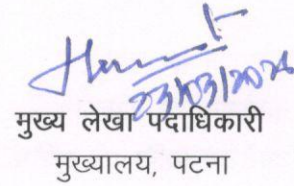 23/03/2026
मुख्य लेखा पदाधिकारी
मुख्यालय, पटना